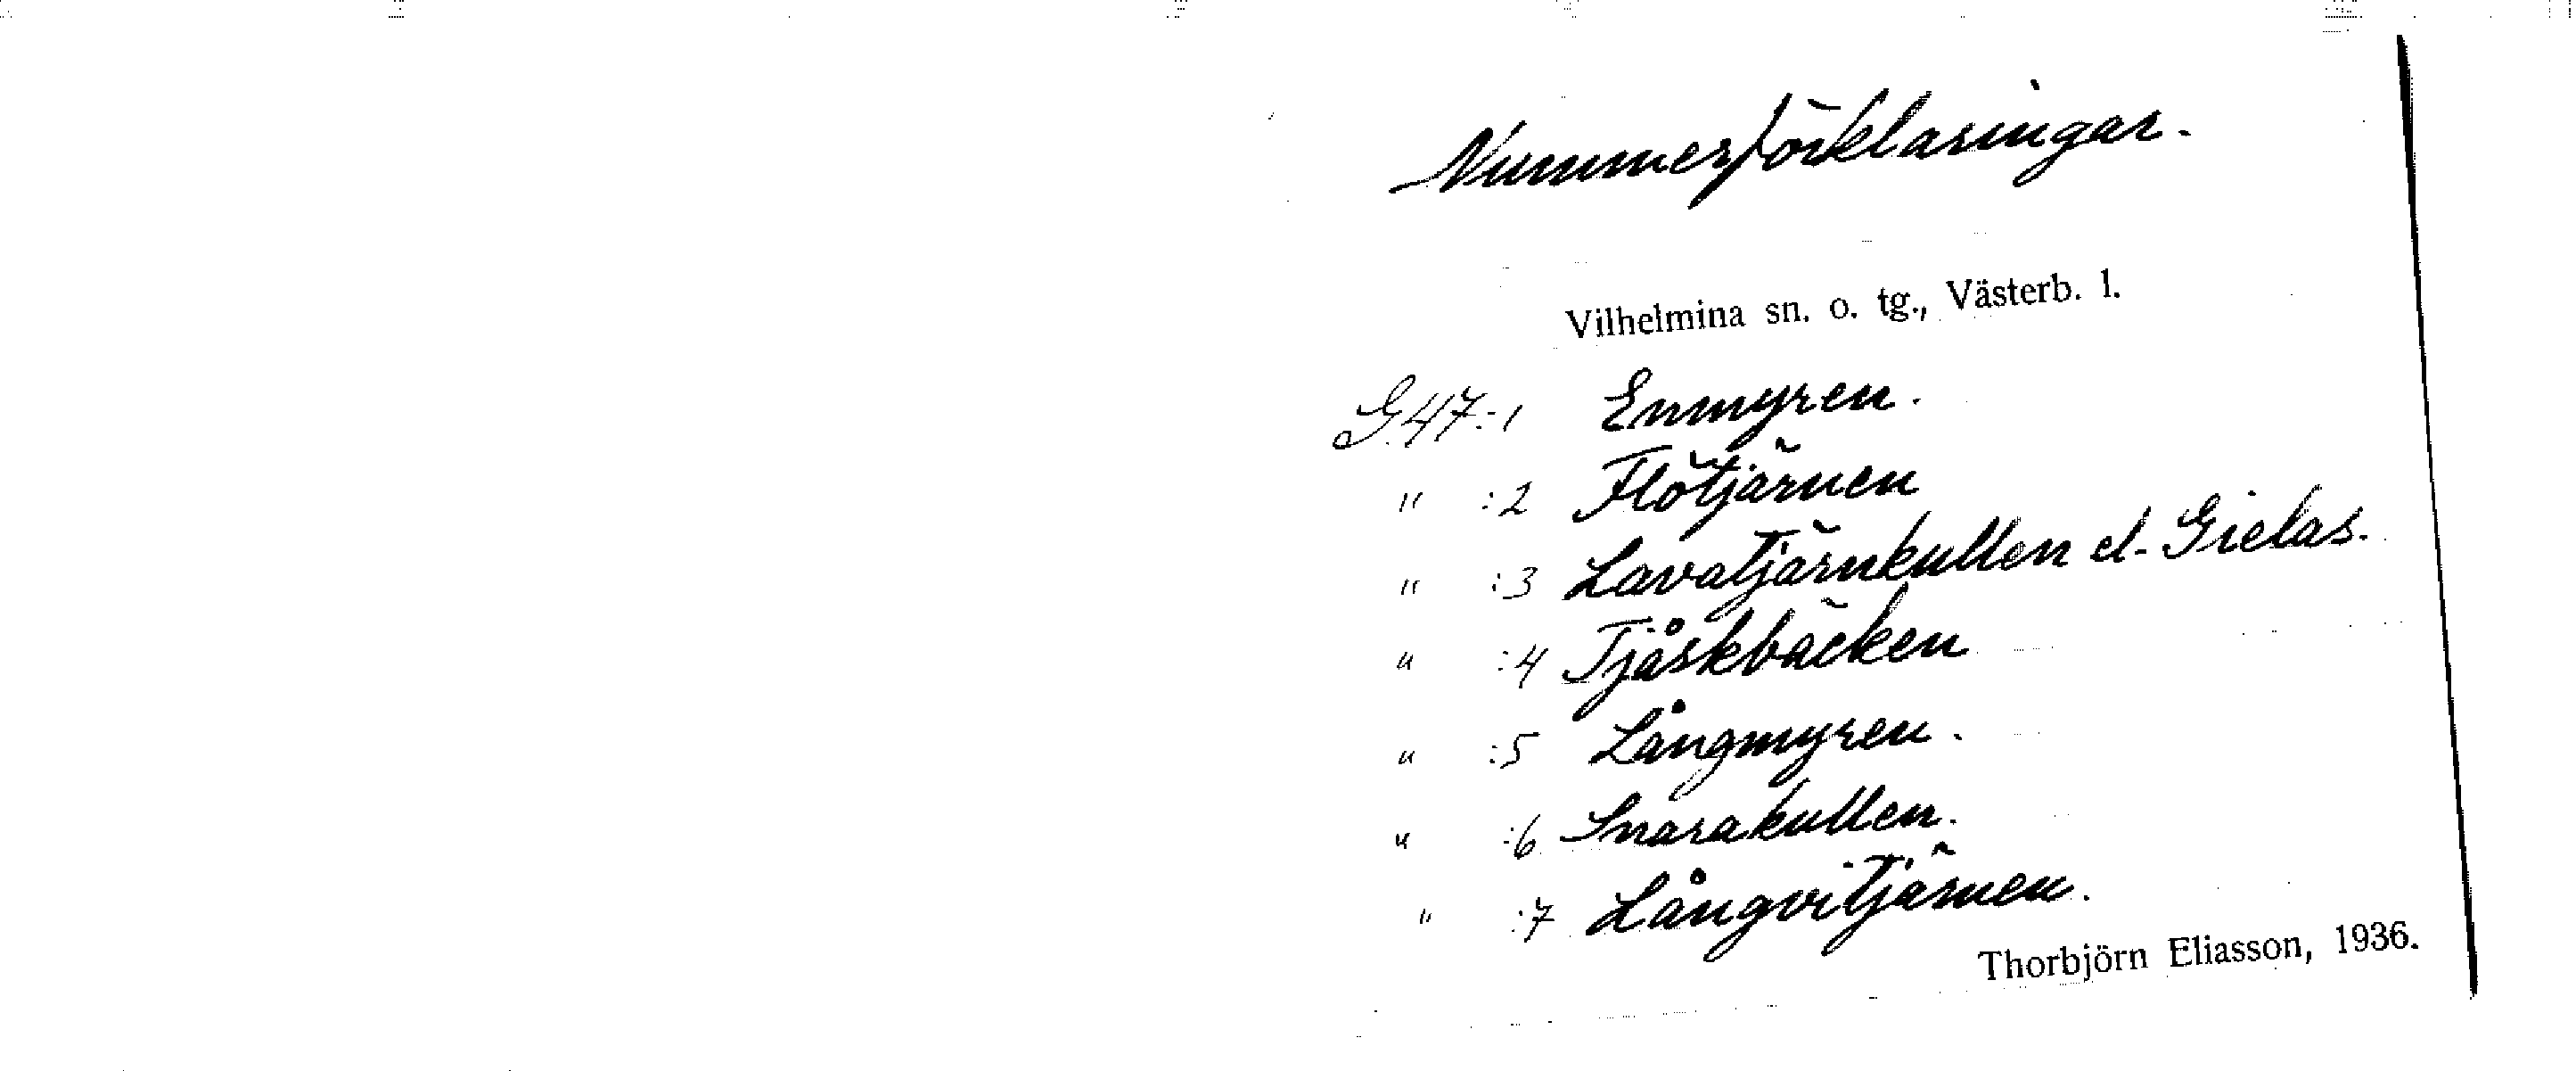 Nummerförklaringar.
Vilhelmina sn. o. tg., Västerb. l.
G.47:1 Enmyren.
" :2 Flötjärnen
" :3 Lavatjärnkullen el. Gielas.
" :4 Tjåskbäcken
" :5 Långmyren.
" :6 Snarakullen.
" :7 Långvitjärnen.
Thorbjörn Eliasson, 1936.